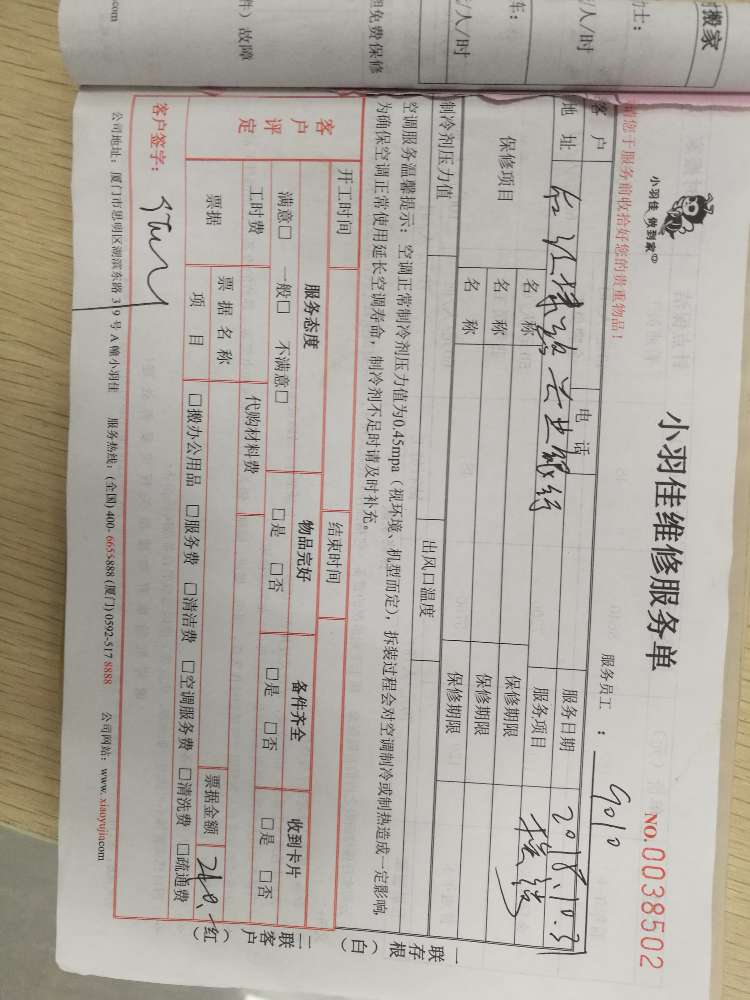 搬家
小羽佳 做到家
小羽佳维修服务单
NO.0038502
请您于服务前收拾好您的贵重物品！
服务员工：9010
客户
电话
服务日期 2018.10.31
地址
兴业银行
服务项目
保修项目
名称
保修期限
名称
保修期限
名称
保修期限
制冷剂压力值
出风口温度
空调服务温馨提示：空调正常制冷剂压力值为0.45mpa（视环境、机型而定），拆装过程会对空调制冷或制热造成一定影响，
为确保空调正常使用延长空调寿命，制冷剂不足时请及时补充。
开工时间
结束时间
客户评定
服务态度
物品完好
备件齐全
收到卡片
满意□ 一般□ 不满意□
□是 □否
□是 □否
□是 □否
工时费
代购材料费
票据
票据名称
票据金额
项目
□搬办公用品 □服务费 □清洁费 □空调服务费 □清洗费 □疏通费
客户签字：
一联存根（白）
二联客户（红）
公司地址：厦门市思明区湖滨东路319号A幢小羽佳 服务热线：(全国) 400-6655888 (厦门) 0592-517 8888 公司网站：www.xiaoyujia.com
元/人/时
件）故障
免费保修